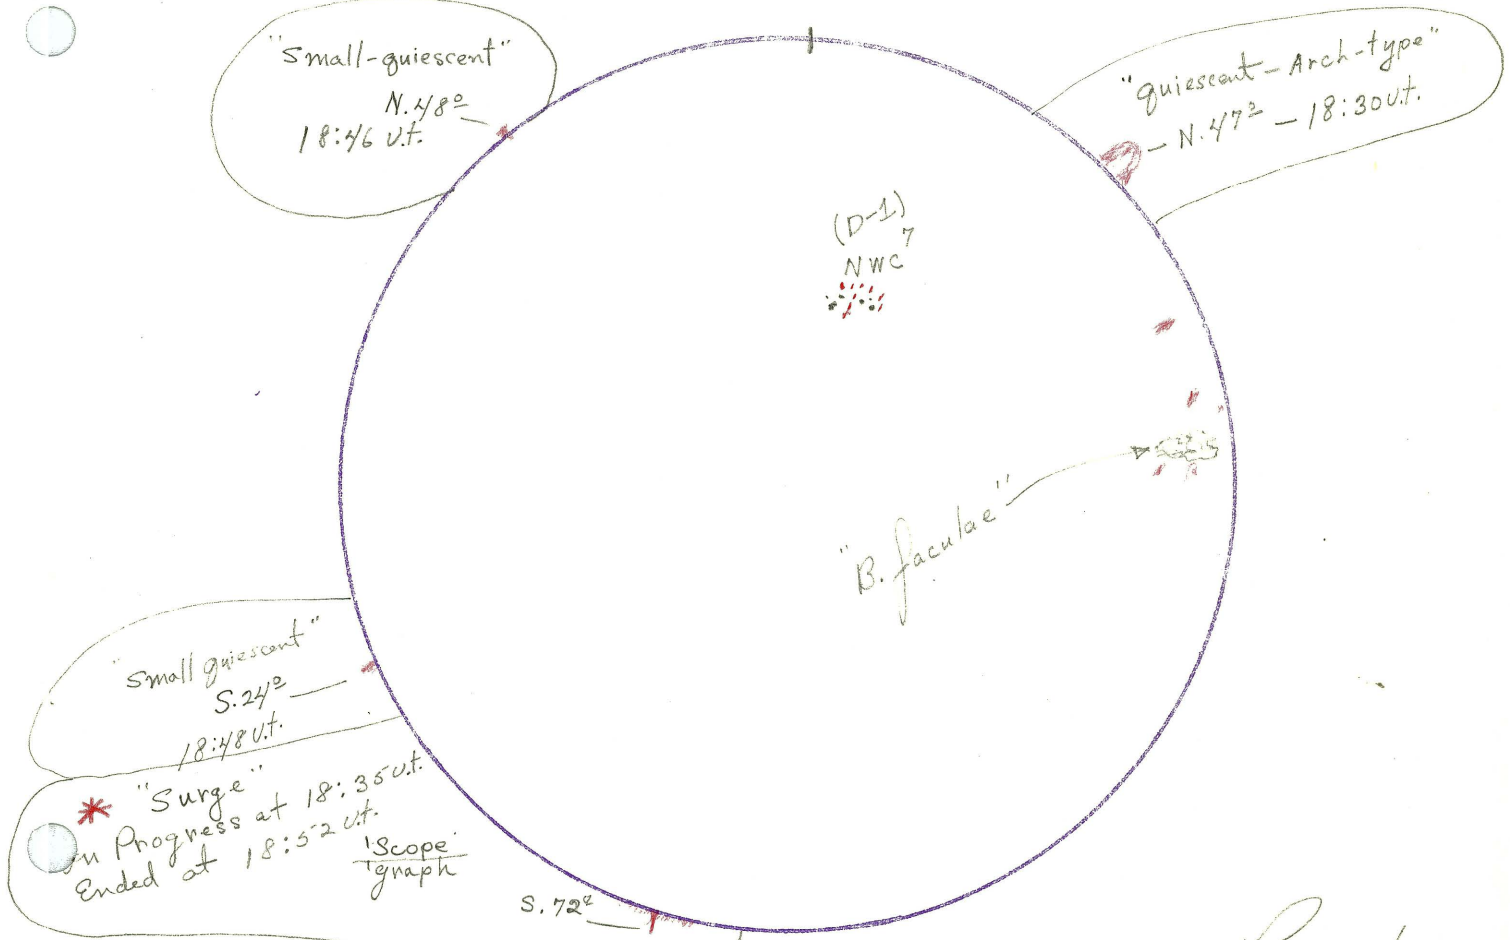 "Small-quiescent"
N.48º
18:46 U.t.
"quiescent-Arch-type"
N.47º - 18:30 U.t.
(D-1)
7
NWC
"B. faculae"
"Small quiescent"
S.24º
18:48 U.t.
* "Surge"
in Progress at 18:35 U.t.
Ended at 18:52 U.t.
'Scope
'graph
S.72º